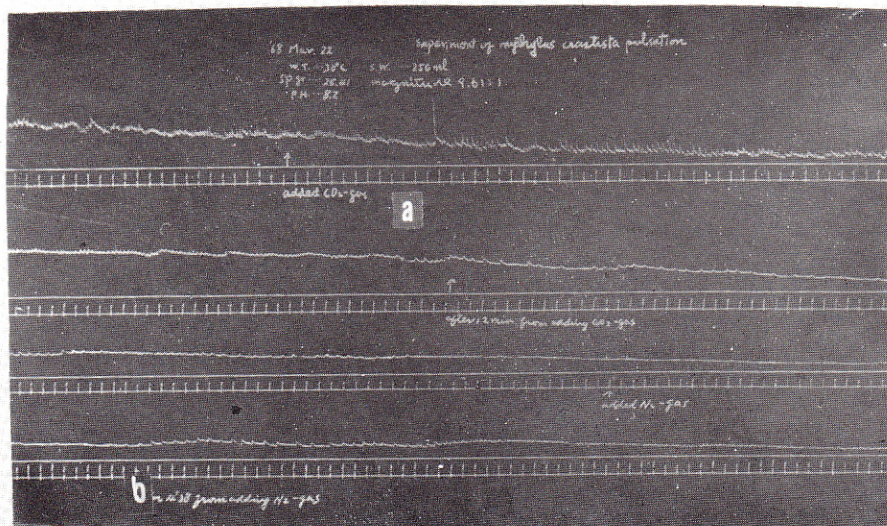 '68 Mar. 22 Experiment of mytylus crastista pulsation
W.T. S.W. 250ml
SP.gr. magnitude 9.61:1
PH. 8.2
added CO₂-gas
a
after 12 min from adding CO₂-gas
added N₂-gas
b
from adding N₂-gas